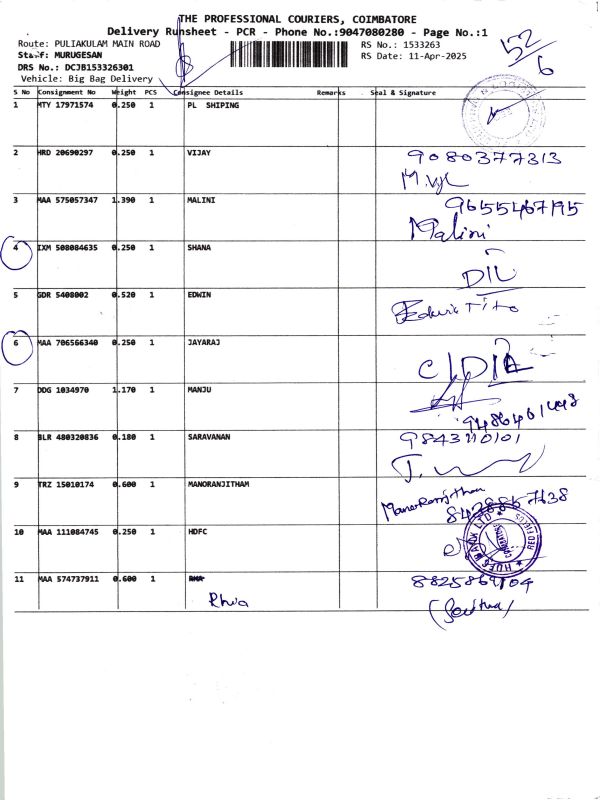 THE PROFESSIONAL COURIERS, COIMBATORE
Delivery Runsheet - PCR - Phone No.:9047080280 - Page No.:1
Route: PULIAKULAM MAIN ROAD RS No.: 1533263
Staff: MURUGESAN RS Date: 11-Apr-2025
DRS No.: DCJB153326301
Vehicle: Big Bag Delivery
52/6
S No Consignment No Weight PCS Consignee Details Remarks Seal & Signature
1 MTY 17971574 0.250 1 PL SHIPING
2 HRD 20690297 0.250 1 VIJAY 9080377313
3 MAA 575057347 1.390 1 MALINI 9655467195
Malini
4 IXM 508084635 0.250 1 SHANA
DIL
5 GDR 5408002 0.520 1 EDWIN
Edwin Tito
6 MAA 706566340 0.250 1 JAYARAJ
7 DDG 1034970 1.170 1 MANJU
9486461448
8 BLR 480320836 0.180 1 SARAVANAN 9843110101
9 TRZ 15010174 0.600 1 MANORANJITHAM Manoranjitham
8428857638
10 MAA 111084745 0.250 1 HDFC
RED FIELDS
COIMBATORE
11 MAA 574737911 0.600 1 RHA 8825869104
Rhia